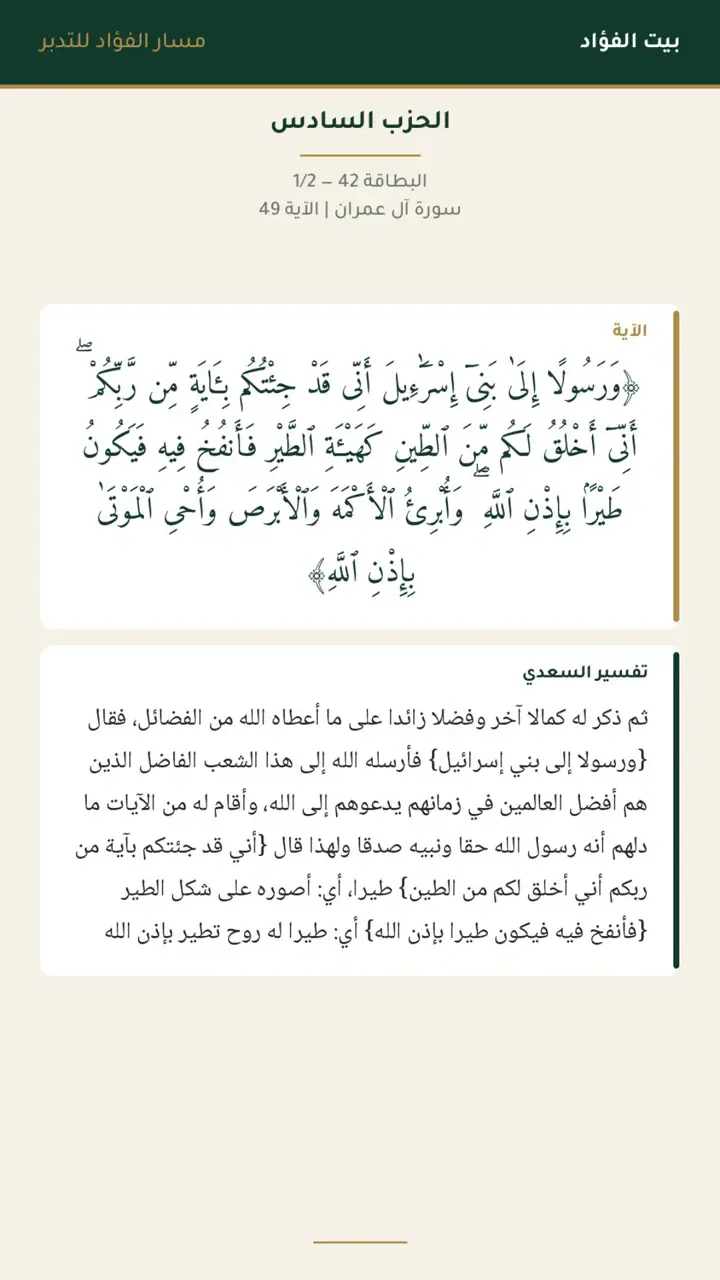 بيت الفؤاد
مسار الفؤاد للتدبر
الحزب السادس
البطاقة 42 – 1/2
سورة آل عمران | الآية 49
الآية
﴿وَرَسُولًا إِلَىٰ بَنِىٓ إِسْرَٰٓءِيلَ أَنِّى قَدْ جِئْتُكُم بِـَٔايَةٍ مِّن رَّبِّكُمْ ۖ
أَنِّىٓ أَخْلُقُ لَكُم مِّنَ ٱلطِّينِ كَهَيْـَٔةِ ٱلطَّيْرِ فَأَنفُخُ فِيهِ فَيَكُونُ
طَيْرًۢا بِإِذْنِ ٱللَّهِ ۖ وَأُبْرِئُ ٱلْأَكْمَهَ وَٱلْأَبْرَصَ وَأُحْىِ ٱلْمَوْتَىٰ
بِإِذْنِ ٱللَّهِ﴾
تفسير السعدي
ثم ذكر له كمالا آخر وفضلا زائدا على ما أعطاه الله من الفضائل، فقال
{ورسولا إلى بني إسرائيل} فأرسله الله إلى هذا الشعب الفاضل الذين
هم أفضل العالمين في زمانهم يدعوهم إلى الله، وأقام له من الآيات ما
دلهم أنه رسول الله حقا ونبيه صدقا ولهذا قال {أني قد جئتكم بآية من
ربكم أني أخلق لكم من الطين} طيرا، أي: أصوره على شكل الطير
{فأنفخ فيه فيكون طيرا بإذن الله} أي: طيرا له روح تطير بإذن الله